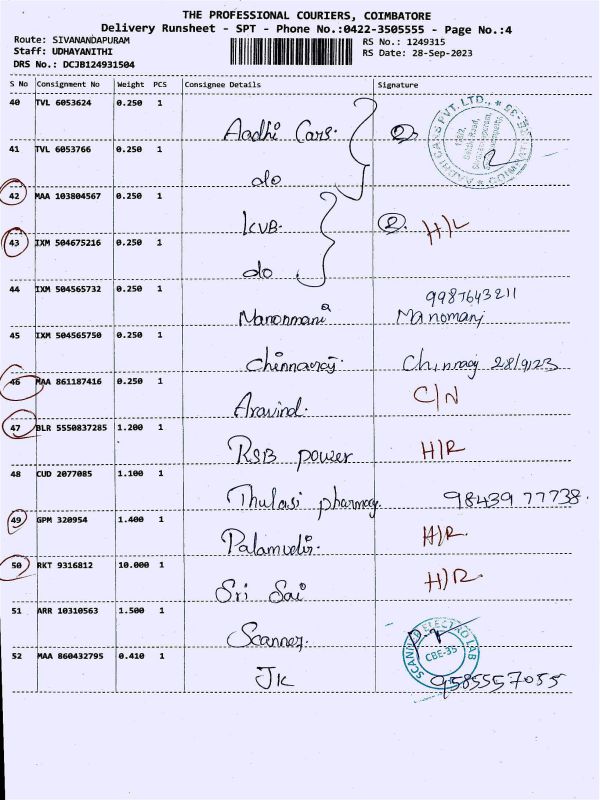 THE PROFESSIONAL COURIERS, COIMBATORE
Delivery Runsheet - SPT - Phone No.:0422-3505555 - Page No.:4
Route: SIVANANDAPURAM
RS No.: 1249315
Staff: UDHAYANITHI
RS Date: 28-Sep-2023
DRS No.: DCJB124931504
S No Consignment No Weight PCS Consignee Details Signature
40 TVL 6053624 0.250 1 Aadhi Cars. 2
41 TVL 6053766 0.250 1 do
42 MAA 103804567 0.250 1 KVB. 2 H/L
43 IXM 504675216 0.250 1 do
44 IXM 504565732 0.250 1 Manonmani 9987643211 Manomani
45 IXM 504565750 0.250 1 Chinnaraj. Chinnaraj 28/9/23
46 MAA 861187416 0.250 1 Aravind. C/N
47 BLR 5550837285 1.200 1 RSB power H/R
48 CUD 2077085 1.100 1 Thulasi pharmacy. 98439 77738.
49 GPM 320954 1.400 1 Palamudir. H/R.
50 RKT 9316812 10.000 1 Sri Sai H/R.
51 ARR 10310563 1.500 1 Scanner. SCANNED ELECTRO LAB CBE-35
52 MAA 860432795 0.410 1 JK 9585557055